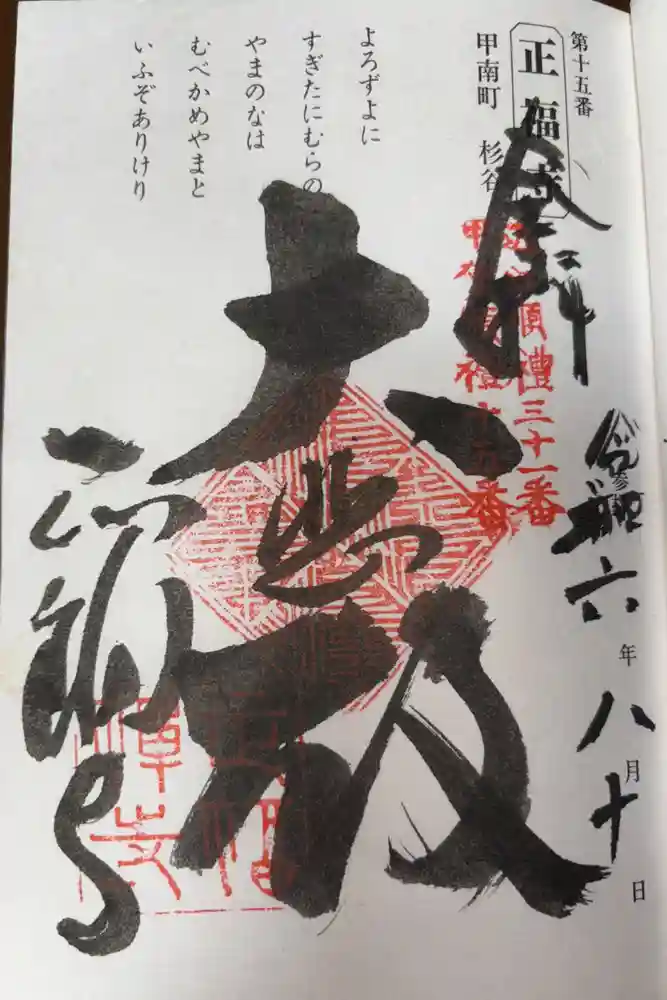 第十五番
正福寺
甲南町 杉谷
よろずよに
すぎたにむらの
やまのなは
むべかめやまと
いふぞありけり
奉拝
順禮三十一番
令和六年八月十日
大悲殿
正福寺